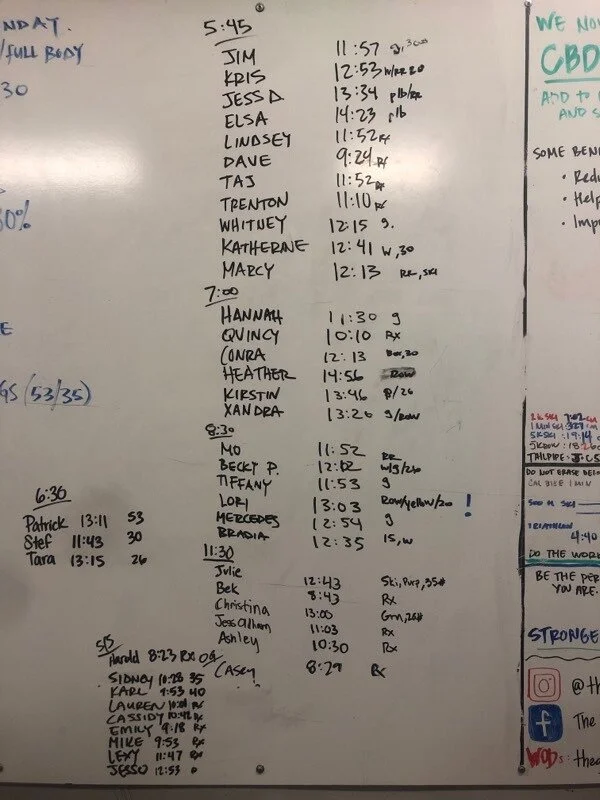 NDAY.
/FULL BODY
30
30%
E
GS (53/35)
5:45
JIM 11:57 g, 300
KRIS 12:53 W/RR 20
JESS D 13:34 plb/RR
ELSA 14:23 plb
LINDSEY 11:52 Rx
DAVE 9:24 Rx
TAJ 11:52 Rx
TRENTON 11:10 Rx
WHITNEY 12:15 g.
KATHERINE 12:41 W,30
MARCY 12:13 RR, SKI
7:00
HANNAH 11:30 g
QUINCY 10:10 Rx
CONRA 12:13 30
HEATHER 14:56 ROW
KIRSTIN 13:46 P/26
XANDRA 13:26 g/ROW
8:30
MO 11:52 RR
BECKY P. 12:02 W/g/26
TIFFANY 11:53 g
LORI 13:03 Row/yellow/20 !
MERCEDES 12:54 g
BRADIA 12:35 15, W
11:30
Julie 12:43 Ski, Purp, 35#
Bek 8:43 Rx
Christina 13:00 Grn, 26#
Jess Alham 11:03 Rx
Ashley 10:30 Rx
CASEY 8:29 Rx
6:30
Patrick 13:11 53
Stef 11:43 30
Tara 13:15 26
515
Harold 8:23 Rx
SIDNEY 10:28 35
KARL 9:53 40
LAUREN 10:01 Rx
CASSIDY 10:42 Rx
EMILY 9:18 Rx
MIKE 9:53 Rx
LEXY 11:47 Rx
JESSO 12:53 P
WE NOW
CBD
ADD TO
AND S
SOME BENE
• Redu
• Help
• Impr
2K SKI 7:02
1 MIN SKI: 327
5K SKI: 19:14
5K ROW: 18:26
TAILPIPE: J CS
DO NOT ERASE BELO
CAL BIKE 1 MIN
500 M SKI
TRIATHLON
4:40
DO THE WORK
BE THE PER
YOU ARE.
STRONGE
@th
The
WODs: theg